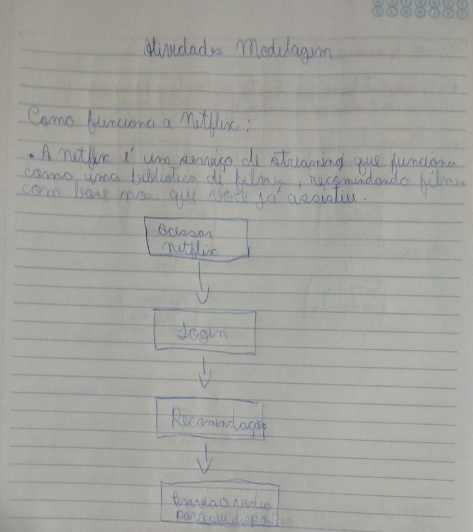 Atividades Modelagem
Como funciona a Netflix:
• A netflix é um serviço de streaming que funciona
como uma biblioteca de filmes, recomendando filmes
com base nos que você já assistiu.
Acessar
netflix
Login
Recomendação
para seu dispositivo